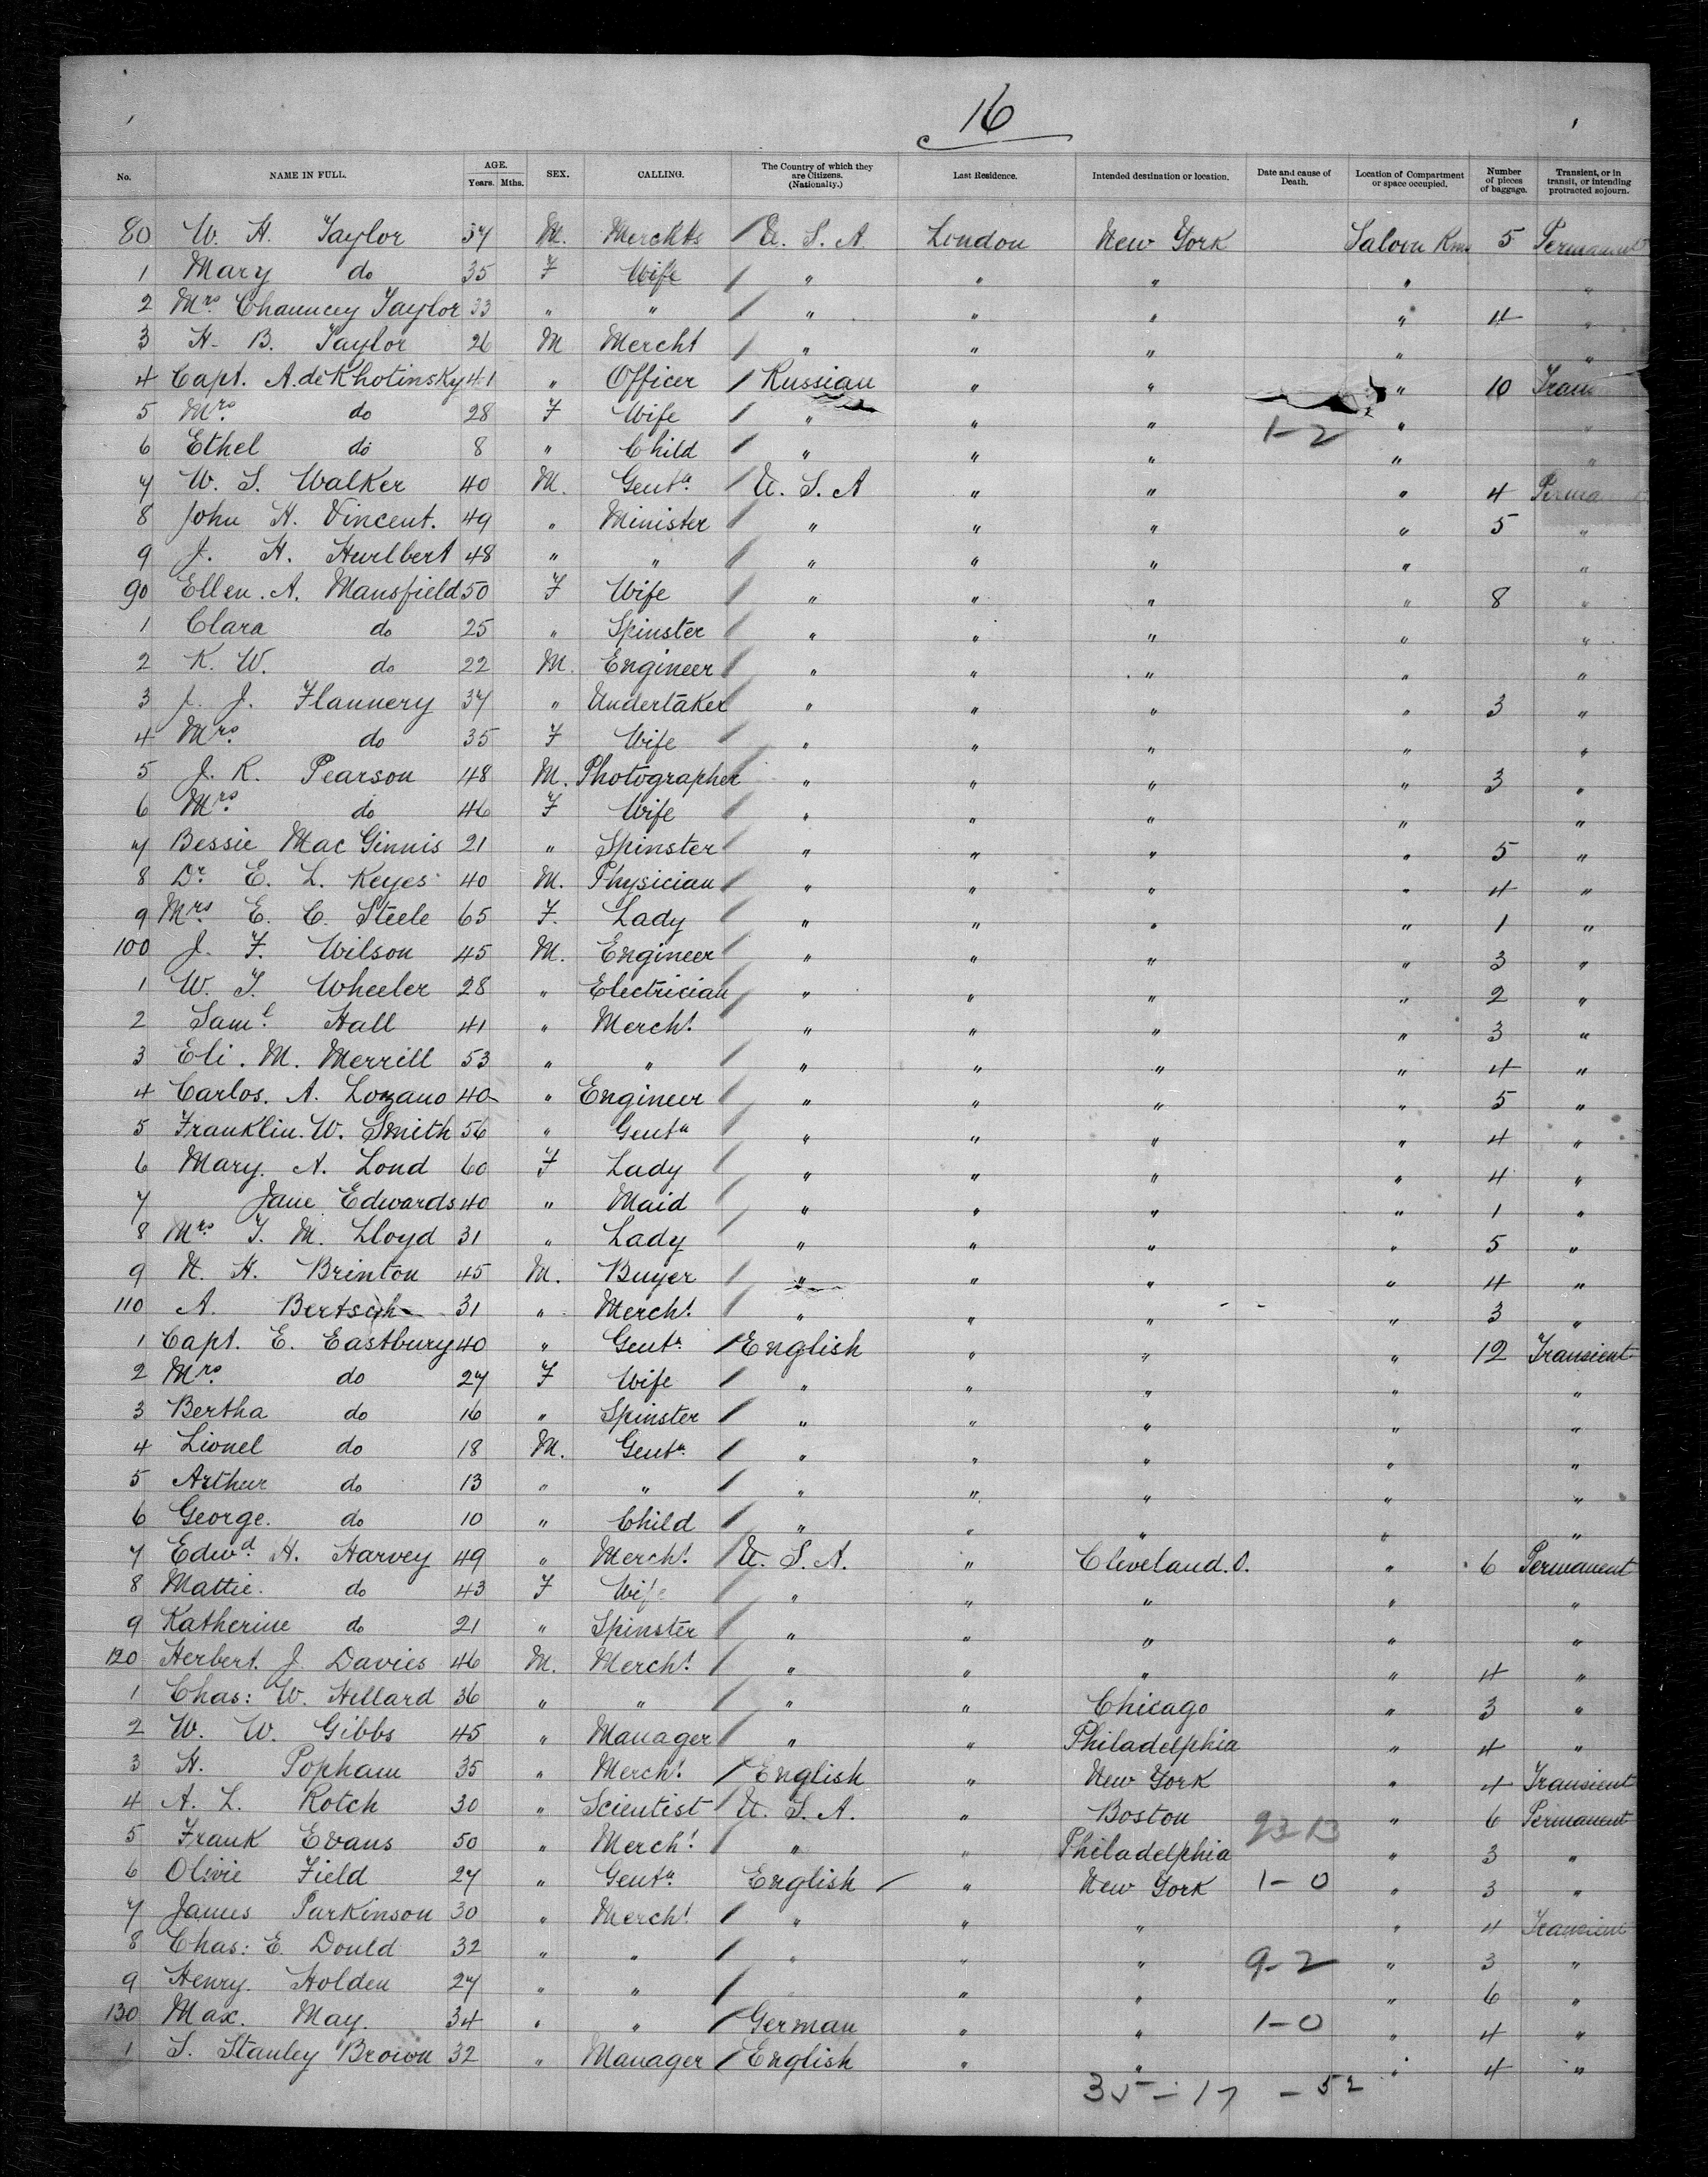 16
No. NAME IN FULL. AGE. Years. Mths. SEX. CALLING. The Country of which they are Citizens. (Nationality.) Last Residence. Intended destination or location. Date and cause of Death. Location of Compartment or space occupied. Number of pieces of baggage. Transient, or in transit, or intending protracted sojourn.
80 W. H. Taylor 37 M. Merchts U. S. A London New York Saloon Rms 5 Permanent
1 Mary do 35 F Wife " " " " "
2 Mrs Chauncey Taylor 33 " " " " " " 4 "
3 H. B. Taylor 26 M Mercht " " " " "
4 Capt. A. de Khotinsky 41 " Officer Russian " " " 10 Tran
5 Mrs. do 28 F Wife " " " 1-2 " "
6 Ethel do 8 " Child " " " " "
7 W. S. Walker 40 M. Gentn U. S. A " " " 4 Perma
8 John H. Vincent. 49 " Minister " " " " 5 "
9 J. H. Hurlbert 48 " " " " " " "
90 Ellen. A. Mansfield 50 F Wife " " " " 8 "
1 Clara do 25 " Spinster " " " " "
2 K. W. do 22 M. Engineer " " " " "
3 J. J. Flannery 37 " Undertaker " " " " 3 "
4 Mrs. do 35 F Wife " " " " "
5 J. R. Pearson 48 M. Photographer " " " " 3 "
6 Mrs. do 46 F Wife " " " " "
7 Bessie Mac Ginnis 21 " Spinster " " " " 5 "
8 Dr E. L. Keyes 40 M. Physician " " " " 4 "
9 Mrs. E. C. Steele 65 F. Lady " " " " 1 "
100 J. F. Wilson 45 M. Engineer " " " " 3 "
1 W. T. Wheeler 28 " Electrician " " " " 2 "
2 Saml. Hall 41 " Mercht. " " " " 3 "
3 Eli. M. Merrill 53 " " " " " " 4 "
4 Carlos. A. Lozano 40 " Engineer " " " " 5 "
5 Franklin. W. Smith 56 " Gentn " " " " 4 "
6 Mary. A. Lond 60 F Lady " " " " 4 "
7 Jane Edwards 40 " Maid " " " " 1 "
8 Mrs. T. M. Lloyd 31 " Lady " " " " 5 "
9 N. H. Brinton 45 M. Buyer " " " " 4 "
110 A. Bertsch 31 " Mercht. " " " " 3 "
1 Capt. E. Eastbury 40 " Gentn. English " " " 12 Transient
2 Mrs. do 27 F Wife " " " " "
3 Bertha do 16 " Spinster " " " " "
4 Lionel do 18 M. Gentn. " " " " "
5 Arthur do 13 " " " " " " "
6 George. do 10 " Child " " " " "
7 Edwd. H. Harvey 49 " Mercht. U. S. A. " Cleveland. O. " 6 Permanent
8 Mattie. do 43 F Wife " " " " "
9 Katherine do 21 " Spinster " " " " "
120 Herbert. J. Davies 46 M. Mercht. " " " " 4 "
1 Chas: W. Hillard 36 " " " " Chicago " 3 "
2 W. W. Gibbs 45 " Manager " " Philadelphia " 4 "
3 H. Popham 35 " Mercht. English " New York " 4 Transient
4 A. L. Rotch 30 " Scientist U. S. A. " Boston " 6 Permanent
5 Frank Evans 50 " Mercht. " " Philadelphia 23-13 " 3 "
6 Olivie Field 27 " Gentn. English " New York 1-0 " 3 "
7 James Parkinson 30 " Mercht. " " " " 4 Transient
8 Chas: E. Dould 32 " " " " " 9-2 " 3 "
9 Henry. Holden 27 " " " " " 6 "
130 Max. May. 34 " " German " " 1-0 " 4 "
1 S. Stanley Brown 32 " Manager English " " " 4 "
35-17 -52